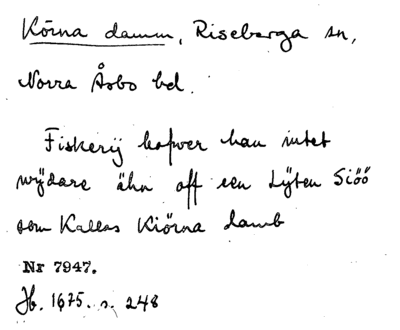 Körna damm, Riseberga sn,
Norra Åsbo hd.
Fiskerij hafwer han intet
wÿdare ähn aff een Lÿten Siöö
som Kallas Kiörna damb
Nr 7947.
Jb. 1675. s. 248